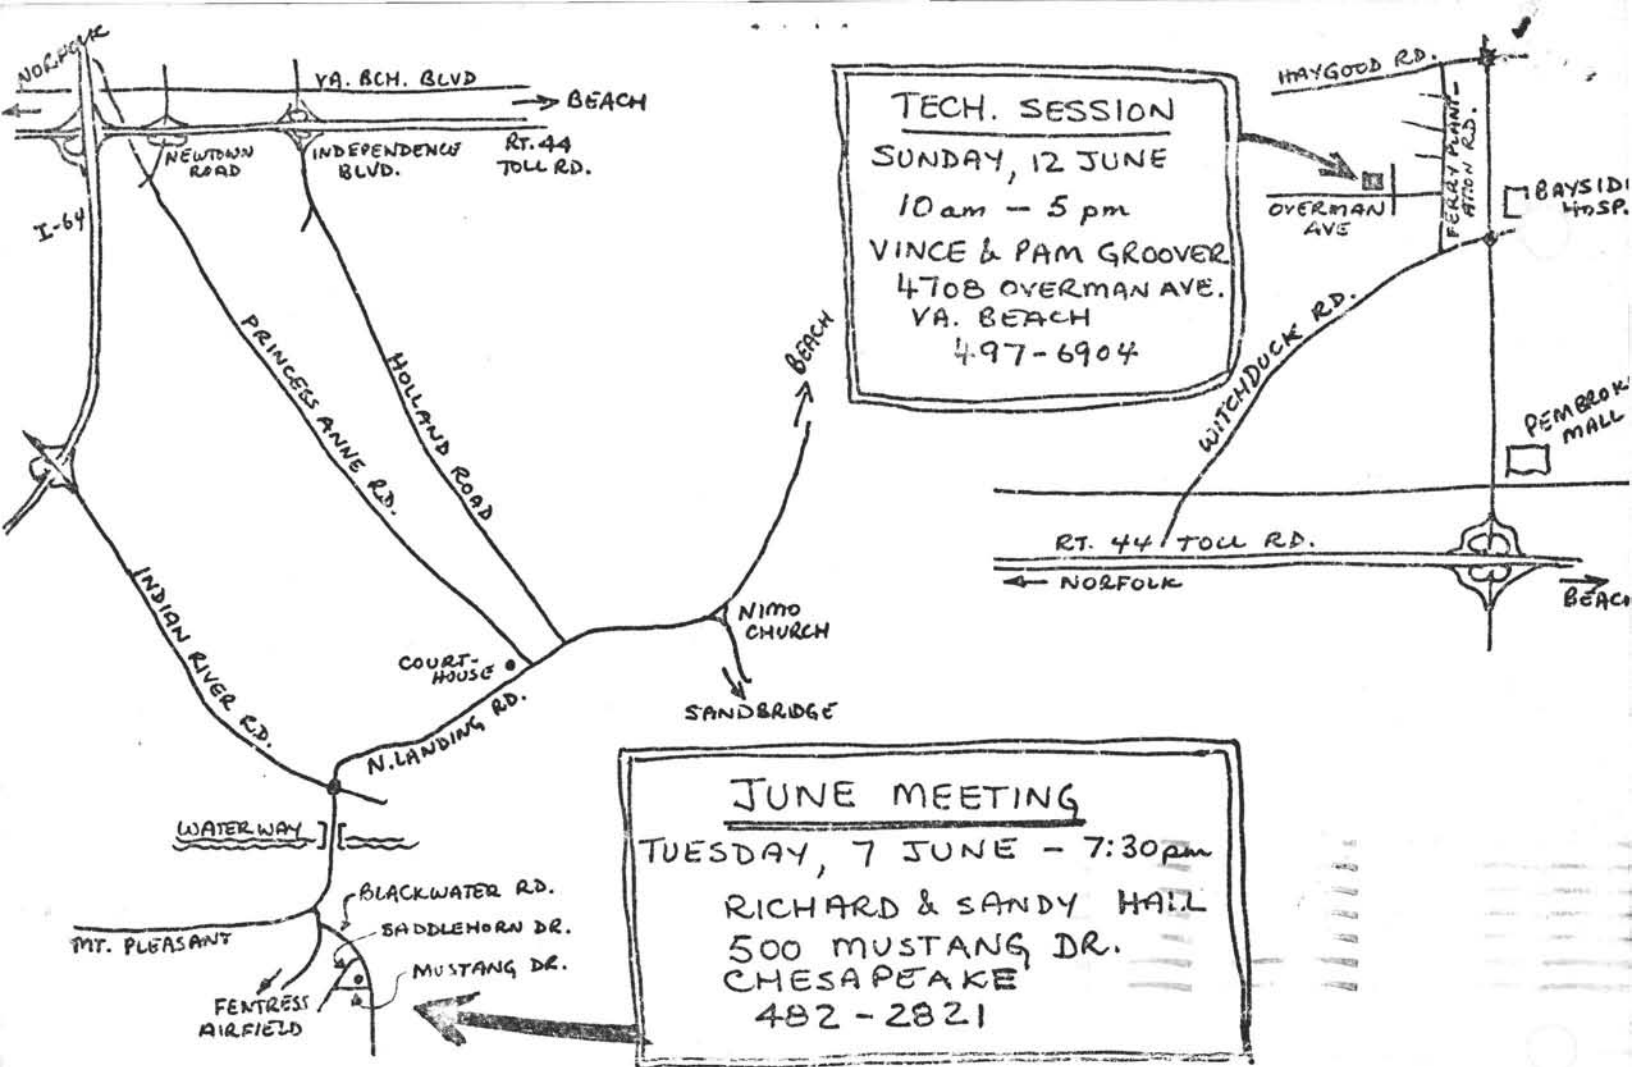 NORFOLK
VA. BCH. BLVD
BEACH
NEWTOWN
ROAD
INDEPENDENCE
BLVD.
RT. 44
TOLL RD.
I-64
PRINCESS ANNE RD.
HOLLAND ROAD
BEACH
INDIAN RIVER RD.
COURT-
HOUSE
NIMO
CHURCH
SANDBRIDGE
N. LANDING RD.
WATERWAY
BLACKWATER RD.
SADDLEHORN DR.
MT. PLEASANT
MUSTANG DR.
FENTRESS
AIRFIELD
TECH. SESSION
SUNDAY, 12 JUNE
10 am - 5 pm
VINCE & PAM GROOVER
4708 OVERMAN AVE.
VA. BEACH
497-6904
HAYGOOD RD.
FERRY PLANT-
ATION RD.
BAYSID
HOSP.
OVERMAN
AVE
WITCHDUCK RD.
PEMBROK
MALL
RT. 44 TOLL RD.
NORFOLK
BEACH
JUNE MEETING
TUESDAY, 7 JUNE - 7:30pm
RICHARD & SANDY HALL
500 MUSTANG DR.
CHESAPEAKE
482-2821